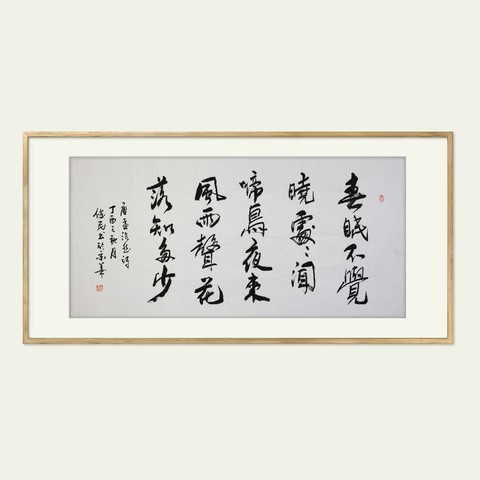 春眠不覺
曉處〻聞
啼鳥夜來
風雨聲花
落知多少
唐孟浩然詩
丁酉之秋月
書於京華